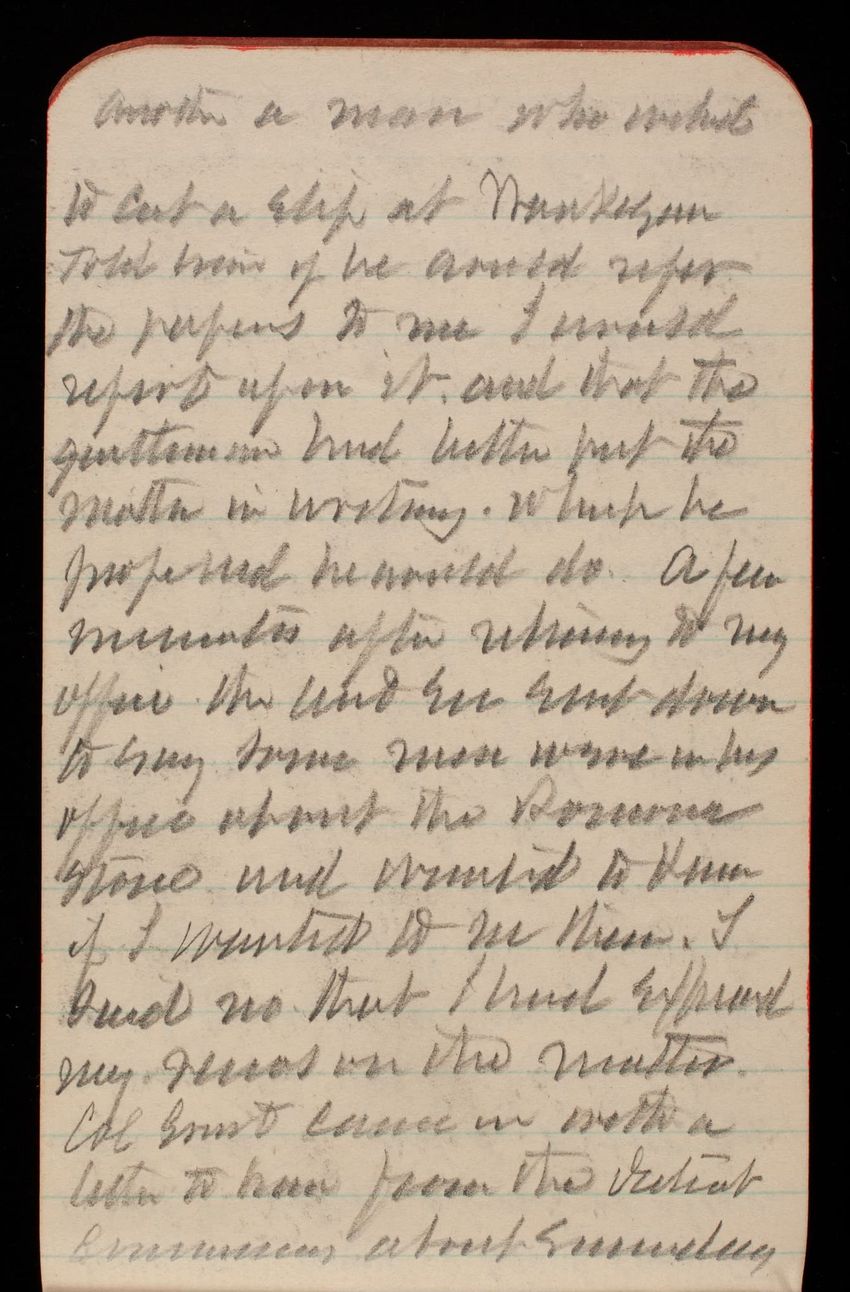 another a man who wished
to cut a slip at Waukegan
Told him if he would refer
the papers to me I would
report upon it. and that the
gentleman had better put the
matter in writing. which he
he would do. A few
minutes after returning to my
office the and Sec sent down
to say some men were in his
office about the Pomona
Stone and wanted to know
if I wanted to see them. I
said no that I had expressed
my views on the matter.
Col Ernst came in with a
letter to him from the District
Commissioners about